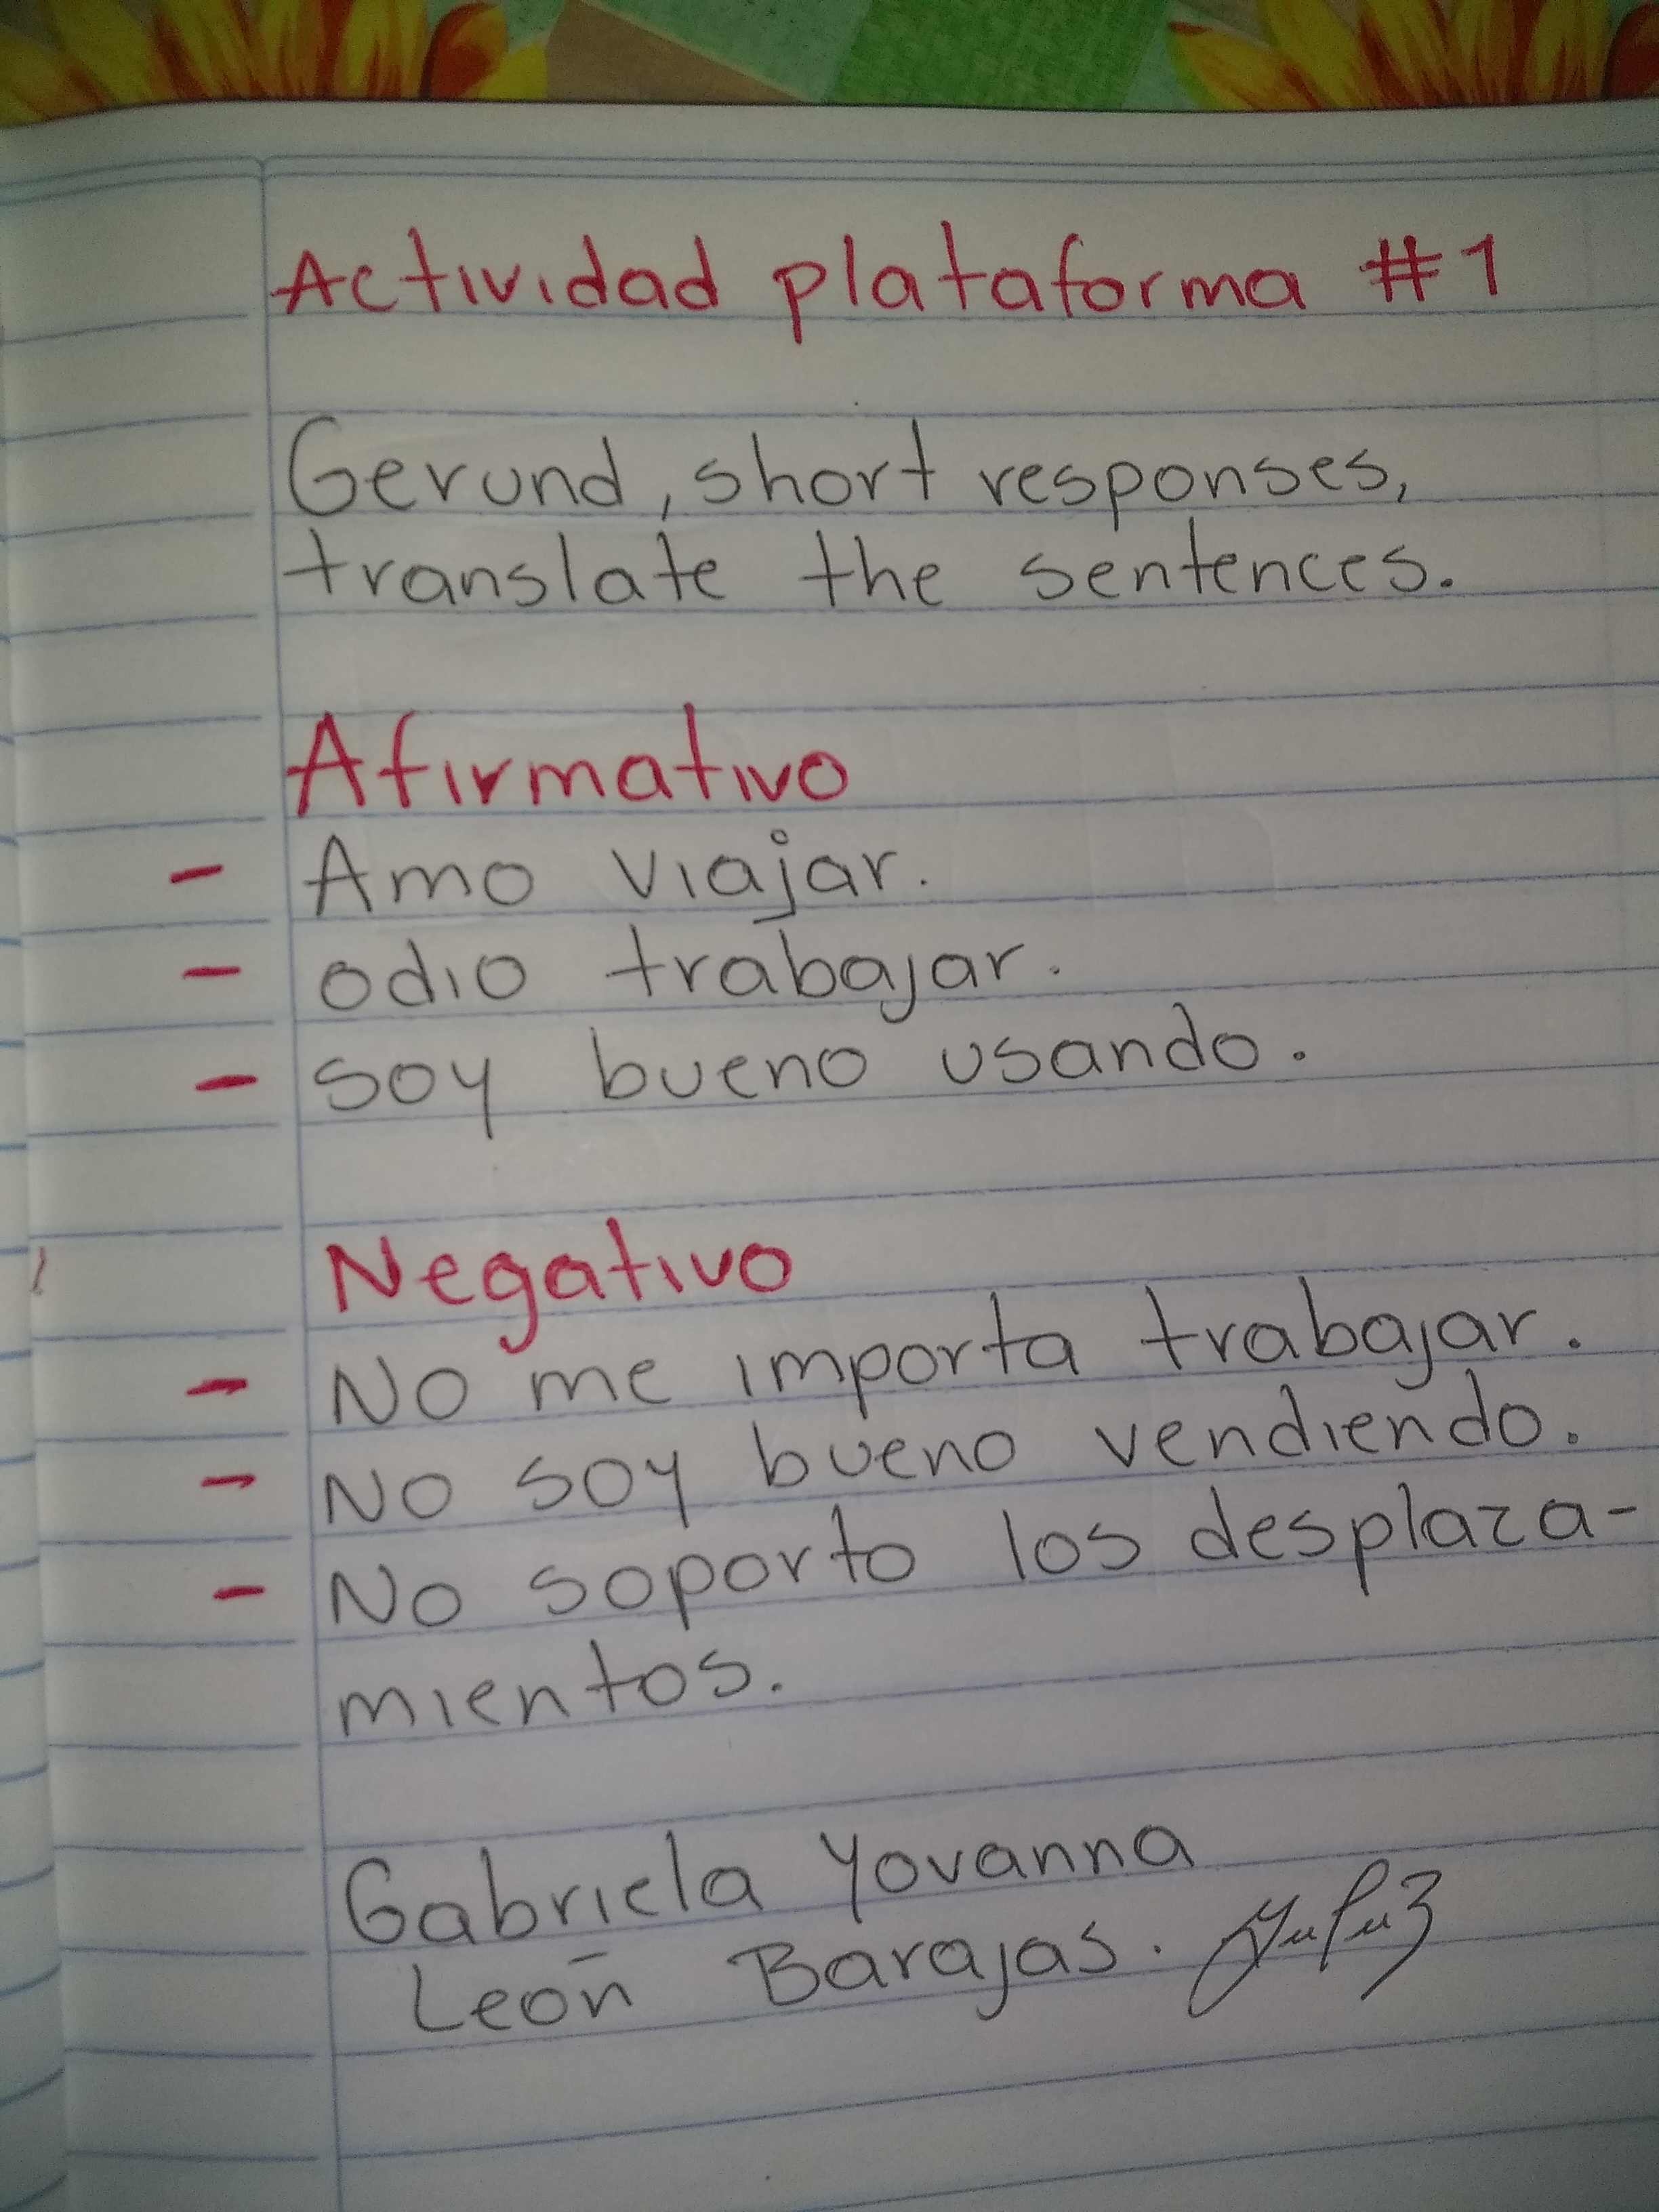 Actividad plataforma #1
Gerund, short responses,
translate the sentences.
Afirmativo
- Amo viajar.
- odio trabajar.
- soy bueno usando.
Negativo
- No me importa trabajar.
- No soy bueno vendiendo.
- No soporto los desplaza-
mientos.
Gabriela Yovanna
León Barajas.